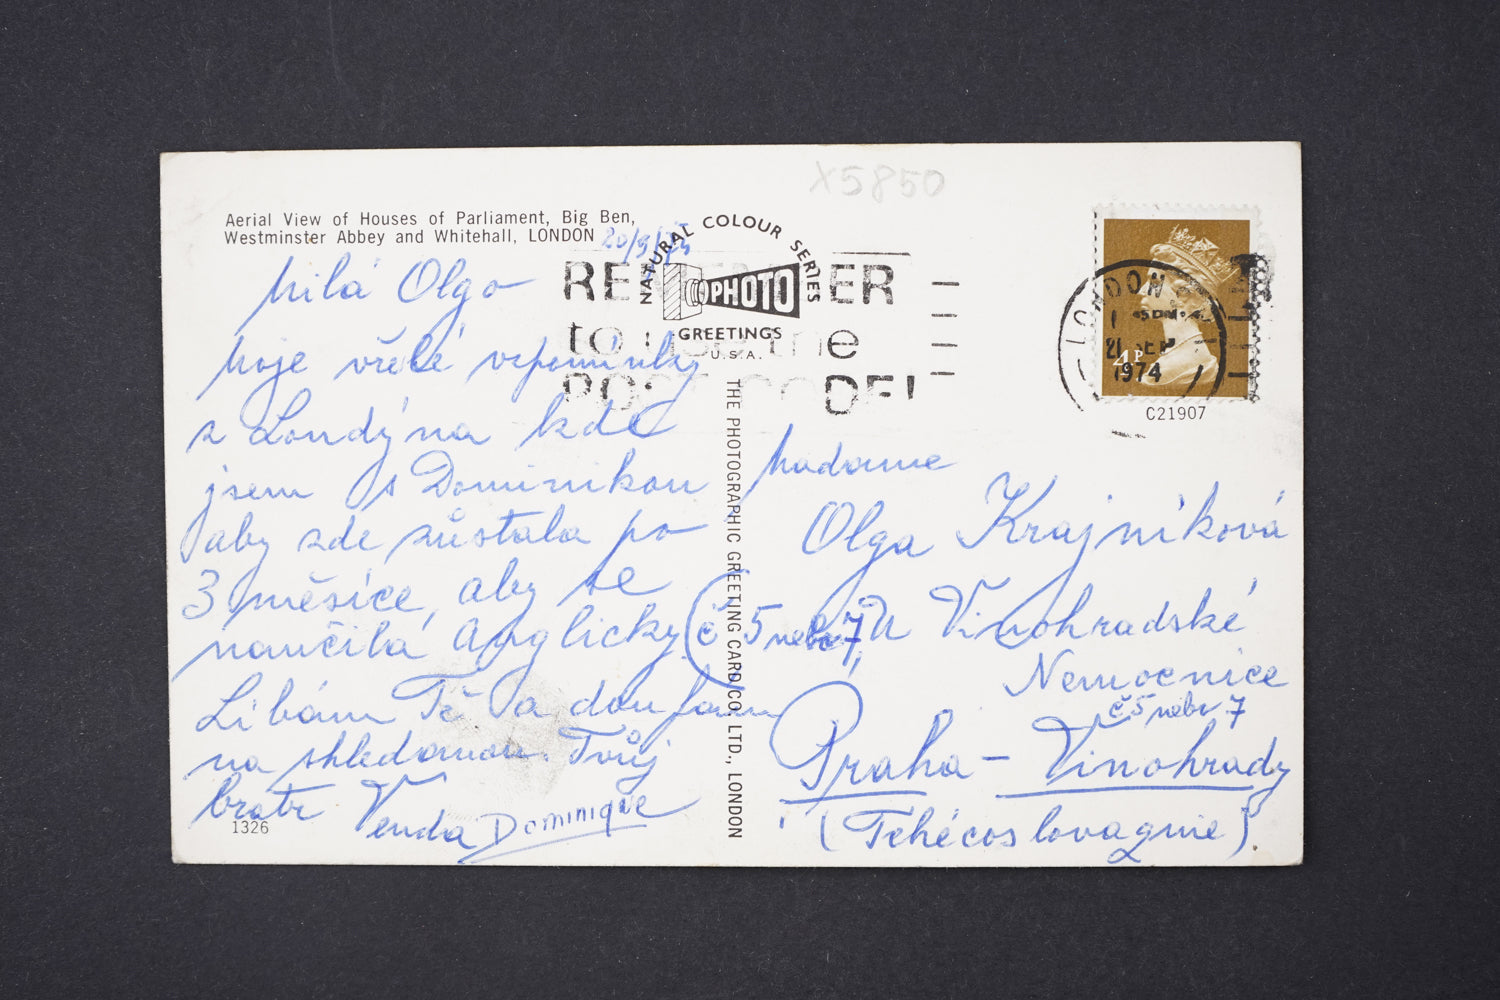 X5850
Aerial View of Houses of Parliament, Big Ben,
Westminster Abbey and Whitehall, LONDON
20/9/74
Milá Olgo
Moje vřelé vzpomínky
z Londýna kde
jsem s Dominikou
aby zde zůstala po
3 měsíce, aby se
naučila Anglicky
Líbám Tě a doufám
na shledanou. Tvůj
bratr Venda Dominique
1326
NATURAL COLOUR SERIES
PHOTO
GREETINGS
U.S.A.
REMEMBER
to use the
POST CODE!
THE PHOTOGRAPHIC GREETING CARD CO. LTD., LONDON
LONDON
21 SEP
1974
4P
C21907
Madame
Olga Krajníková
(č 5 nebo 7, U Vinohradské
Nemocnice
č 5 nebo 7
Praha - Vinohrady
(Tchécoslovaquie)